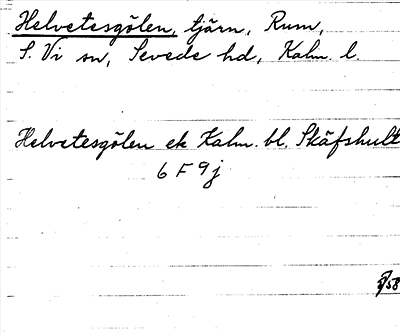 Helvetesgölen, tjärn, Rum,
S. Vi sn, Sevede hd, Kalm. l.
Helvetesgölen ek Kalm. bl. Skäfshult
6 F 9 j